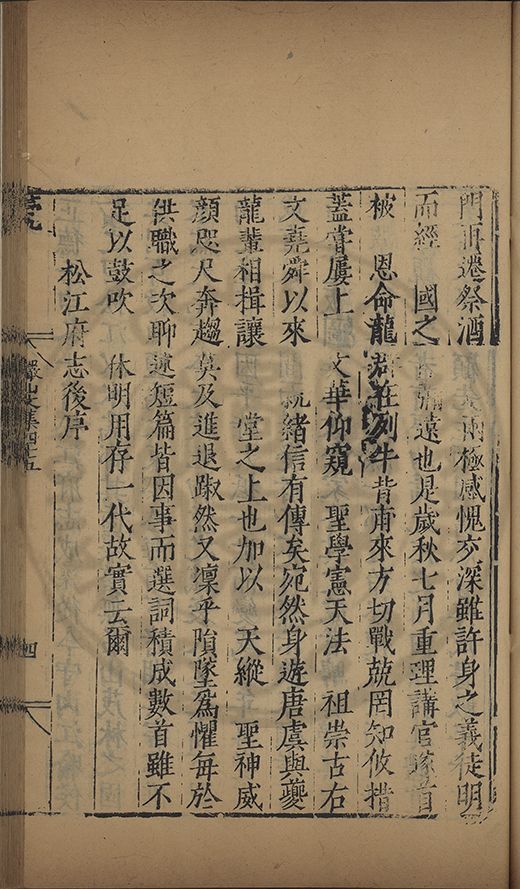 門再遷祭酒 兩極感愧交深雖許身之義徒明
而經 國之 彌遠也是歲秋七月重理講官綴首
被 恩命龍 群在列牛昔甫來方切戰兢罔知攸措
蓋嘗屢上 文華仰窺 聖學憲天法 祖崇古右
文堯舜以來 統緒信有傳矣宛然身遊唐虞與夔
龍輩相揖讓 堂之上也加以 天縱 聖神威
顏咫尺奔趨莫及進退踧然又凜乎隕墜爲懼每於
供職之次聊述短篇皆因事而選詞積成數首雖不
足以鼓吹 休明用存一代故實云爾
松江府志後序
儼山文集四十五
四